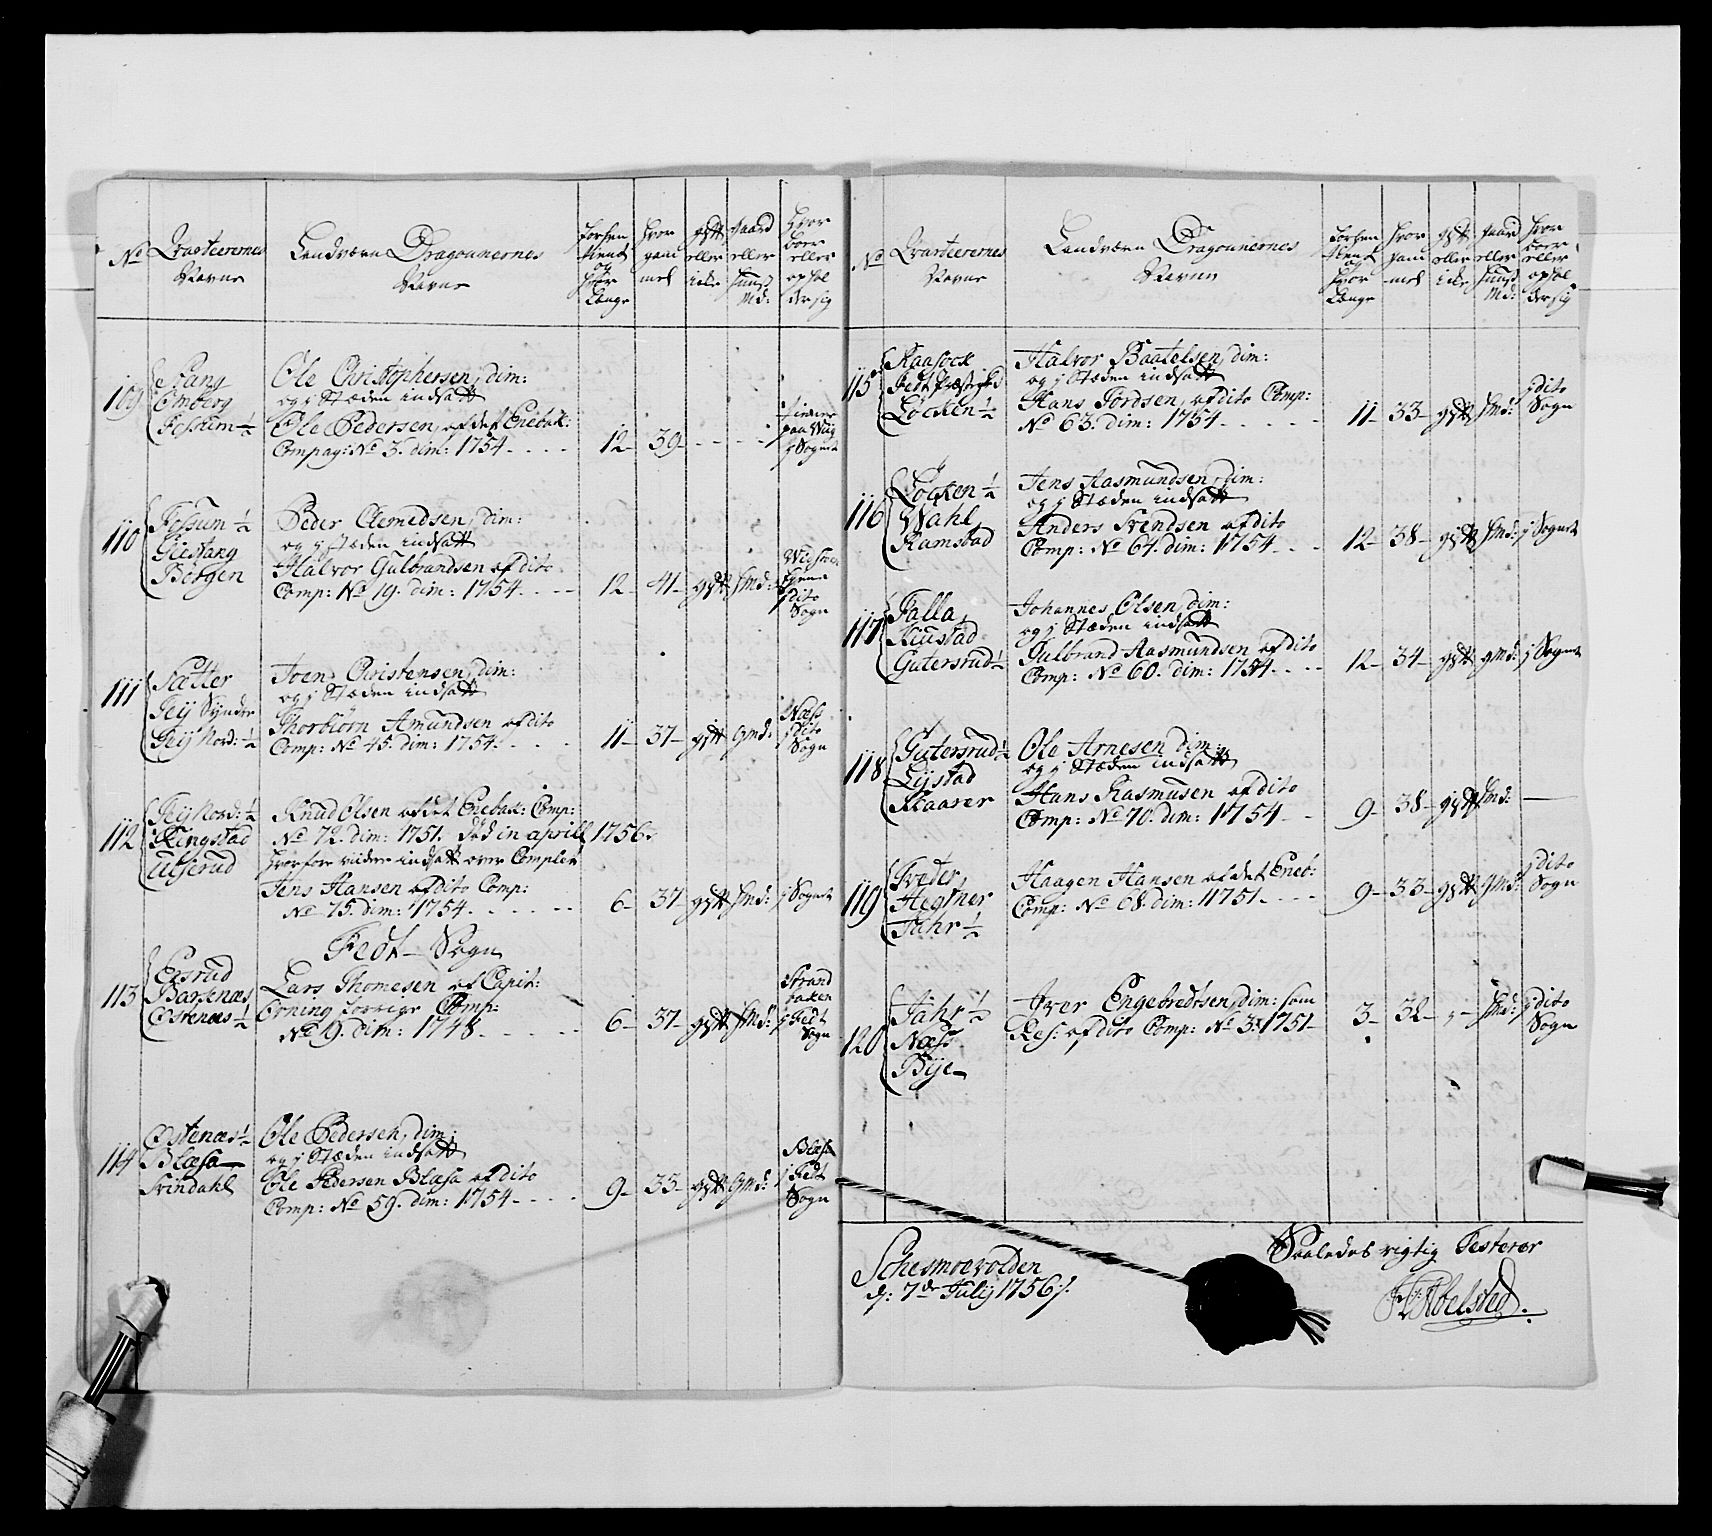 No
Qvarteerernes
Navne
Landværn Dragounernes
Navne
forhen
tient
og
hvor
Længe
hvor
gam
mel
gift
eller
icke
gaard
eller
huus
Md:
hvor
boer
eller
ophol
der sig
109
Stang
Omberg
Fossum ½
Ole Christophersen, dim:
og j Stæden indsatt
Ole Pedersen, af det Enebak:
Compag: No 3. dim: 1754
12 39
j Sognet
110
Fossum ½
Geistang
Børgen
Peder Clemedsen, dim:
og j Stæden indsatt
Halvor Gulbrandsen af dito
Comp: No 19. dim: 1754
12 41 gift hmd:
j dito
Sogn
111
Sætter
Teij Syndre
Teij Nord: ½
Iver Christensen, dim:
og j Stæden indsatt
Thorbiørn Amundsen af dito
Comp: No 45. dim: 1754
11 37 gift gmd:
Næss
j dito
Sogn
112
Teij Nord: ½
Ringstad
Ulserud
Knud Olsen af det Enebak: Comp:
No 72. dim: 1751. død in aprill 1756.
hvorfore viidere indsatt over Complet
Jens Hansen af dito Comp:
No 75. dim: 1754
6 37 gift hmd: j Sognet
Fedt Sogn
113
Ersrud
Barsnæs
Østenæs ½
Lars Thomesen af Capit:
Orning forrige Comp:
No 9. dim: 1748
6 37 gift hmd:
Strand
backen
j Fedt
Sogn
114
Østenæs ½
Blæsa
Svindahl
Ole Pedersen, dim:
og j Stæden indsatt
Ole Pedersen Blæsa af dito
Comp: No 59. dim: 1754
9 33 gift gmd:
Blæsa
j Fedt
Sogn
No
Qvarteerernes
Navne
Landværn Dragounernes
Navne
forhen
tient
og
hvor
Længe
hvor
gam
mel
gift
eller
icke
gaard
eller
huus
Md:
hvor
boer
eller
ophol
der sig
115
Fedt Præstgrd
Løcken ½
Halvor Baatelsen, dim:
og j Stæden indsatt
Hans Jordsen, af dito Comp:
No 63. dim: 1754
11 33 gift hmd:
j dito
Sogn
116
Løcken ½
Wahl
Ramstad
Jens Aasmundsen, dim:
og j Stæden indsatt
Anders Svendsen af dito
Comp: No 64. dim: 1754
12 38 gift hmd: j Sognet
117
Falla
Riustad
Gutersrud ½
Johannes Olsen, dim:
og j Stæden indsatt
Gulbrand Aasmundsen af dito
Comp: No 60. dim: 1754
12 34 gift gmd: j Sognet
118
Gutersrud ½
Lystad
Klaarer
Ole Arnesen dim:
og j Stæden indsatt
Hans Rasmusen af dito
Comp: No 70. dim: 1754
9 38 gift hmd:
119
Tveder
Hegtner
Jahr ½
Haagen Hansen af det Eneb:
Comp: No 68. dim: 1751
9 33 gift gmd:
j dito
Sogn
120
Jahr ½
Næss
Bye
Iver Engebredtsen, dim: som
Res: af dito Comp: No 3. 1751
3 32 hmd:
j dito
Sogn
Schesmoevolden
d: 7de Julij 1756
Saaledes rigtig Testerer
Abelsted